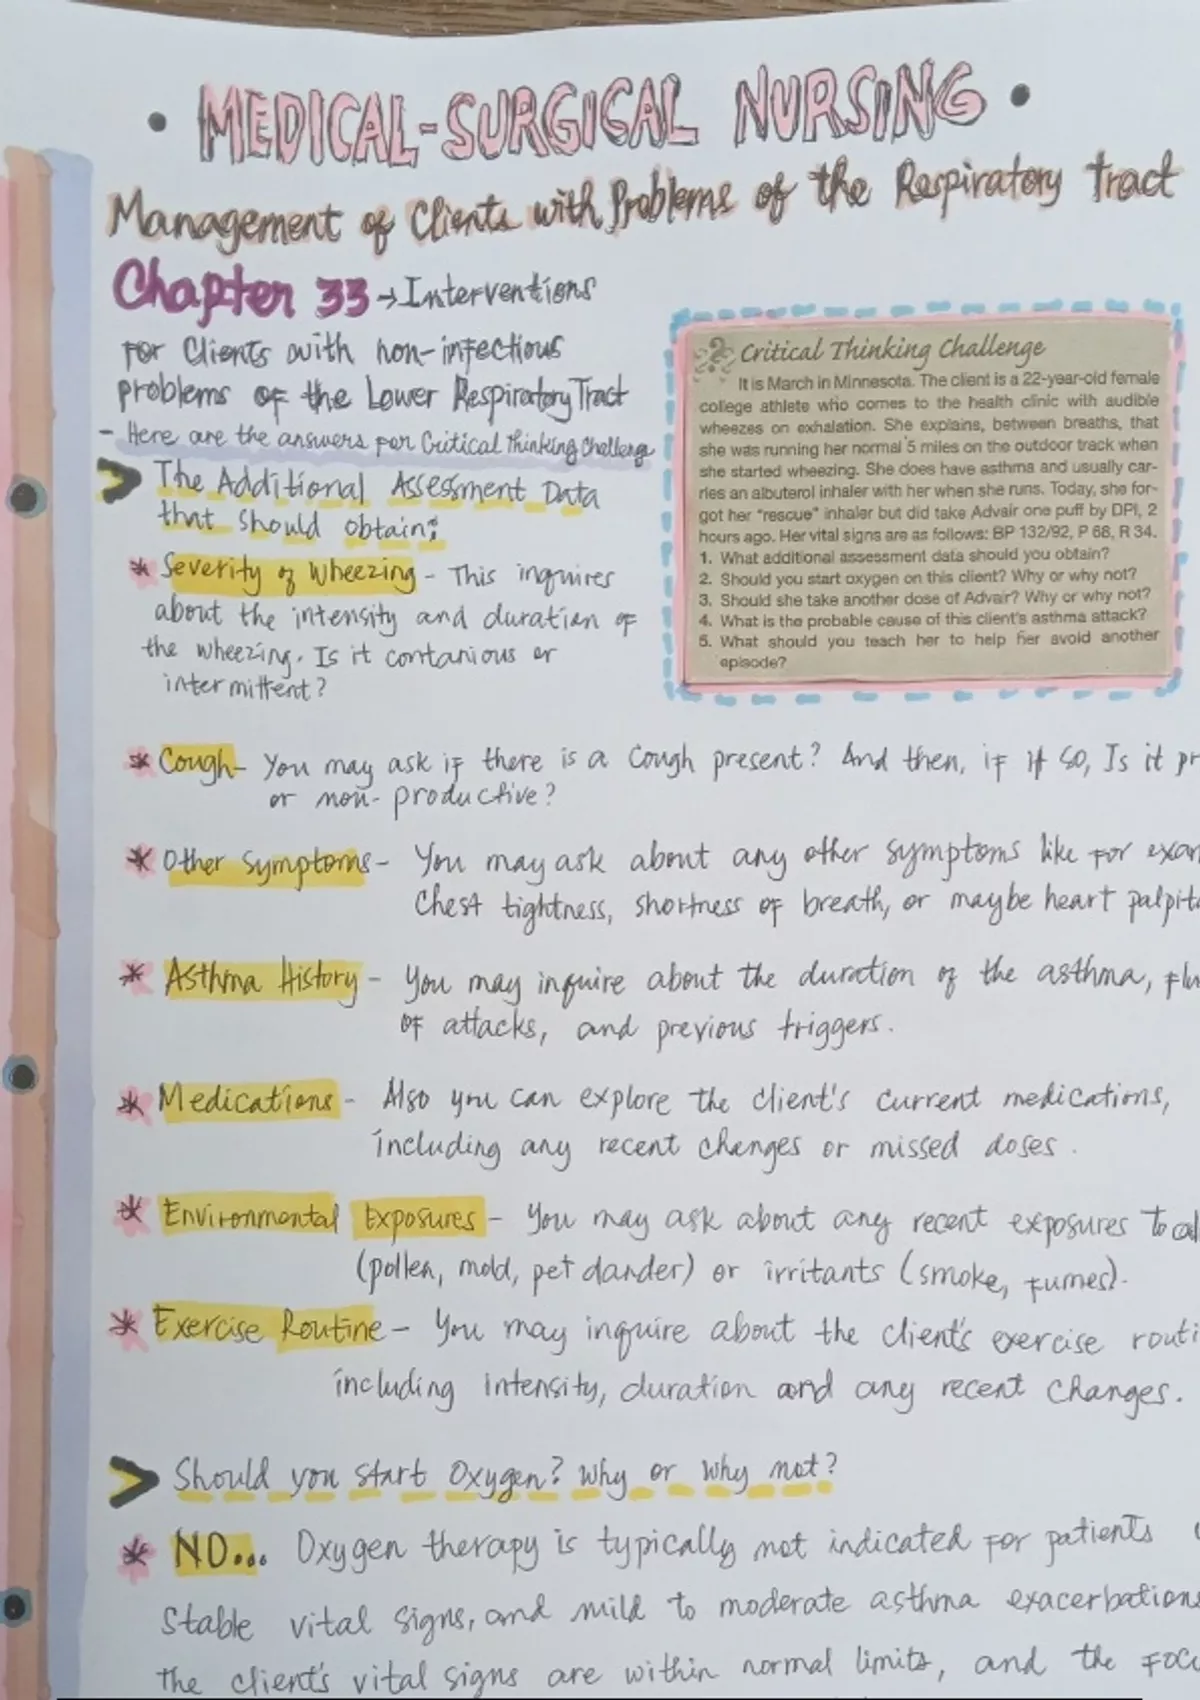 • MEDICAL-SURGICAL NURSING •
Management of Clients with Problems of the Respiratory Tract
Chapter 33 → Interventions
For Clients with non-infectious
problems of the Lower Respiratory Tract
- Here are the answers for Critical Thinking Challenge
> The Additional Assessment Data
that should obtain:
* Severity of Wheezing - This inquires
about the intensity and duration of
the wheezing. Is it contanious or
intermittent?
? Critical Thinking Challenge
It is March in Minnesota. The client is a 22-year-old female
college athlete who comes to the health clinic with audible
wheezes on exhalation. She explains, between breaths, that
she was running her normal 5 miles on the outdoor track when
she started wheezing. She does have asthma and usually car-
ries an albuterol inhaler with her when she runs. Today, she for-
got her "rescue" inhaler but did take Advair one puff by DPI, 2
hours ago. Her vital signs are as follows: BP 132/92, P 68, R 34.
1. What additional assessment data should you obtain?
2. Should you start oxygen on this client? Why or why not?
3. Should she take another dose of Advair? Why or why not?
4. What is the probable cause of this client's asthma attack?
5. What should you teach her to help her avoid another
episode?
* Cough - You may ask if there is a cough present? And then, if it so, Is it pr
or non-productive?
* Other Symptoms - You may ask about any other symptoms like for exam
Chest tightness, shortness of breath, or maybe heart palpita
* Asthma History - You may inquire about the duration of the asthma, flu
of attacks, and previous triggers.
* Medications - Also you can explore the client's current medications,
including any recent changes or missed doses.
* Environmental Exposures - You may ask about any recent exposures to al
(pollen, mold, pet dander) or irritants (smoke, fumes).
* Exercise Routine - You may inquire about the client's exercise routi
including intensity, duration and any recent changes.
> Should you start Oxygen? Why or why not?
* NO... Oxygen therapy is typically not indicated for patients
Stable vital signs, and mild to moderate asthma exacerbations
The client's vital signs are within normal limits, and the foc